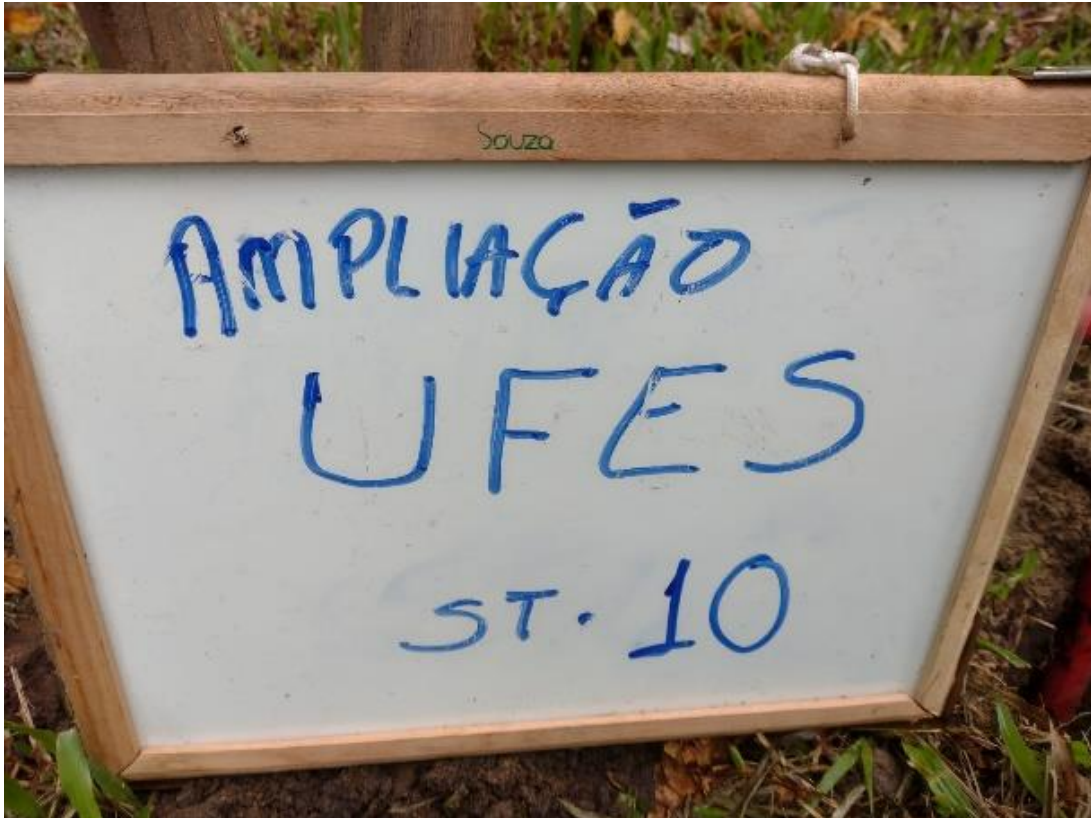 Souza
AMPLIAÇÃO
UFES
ST. 10